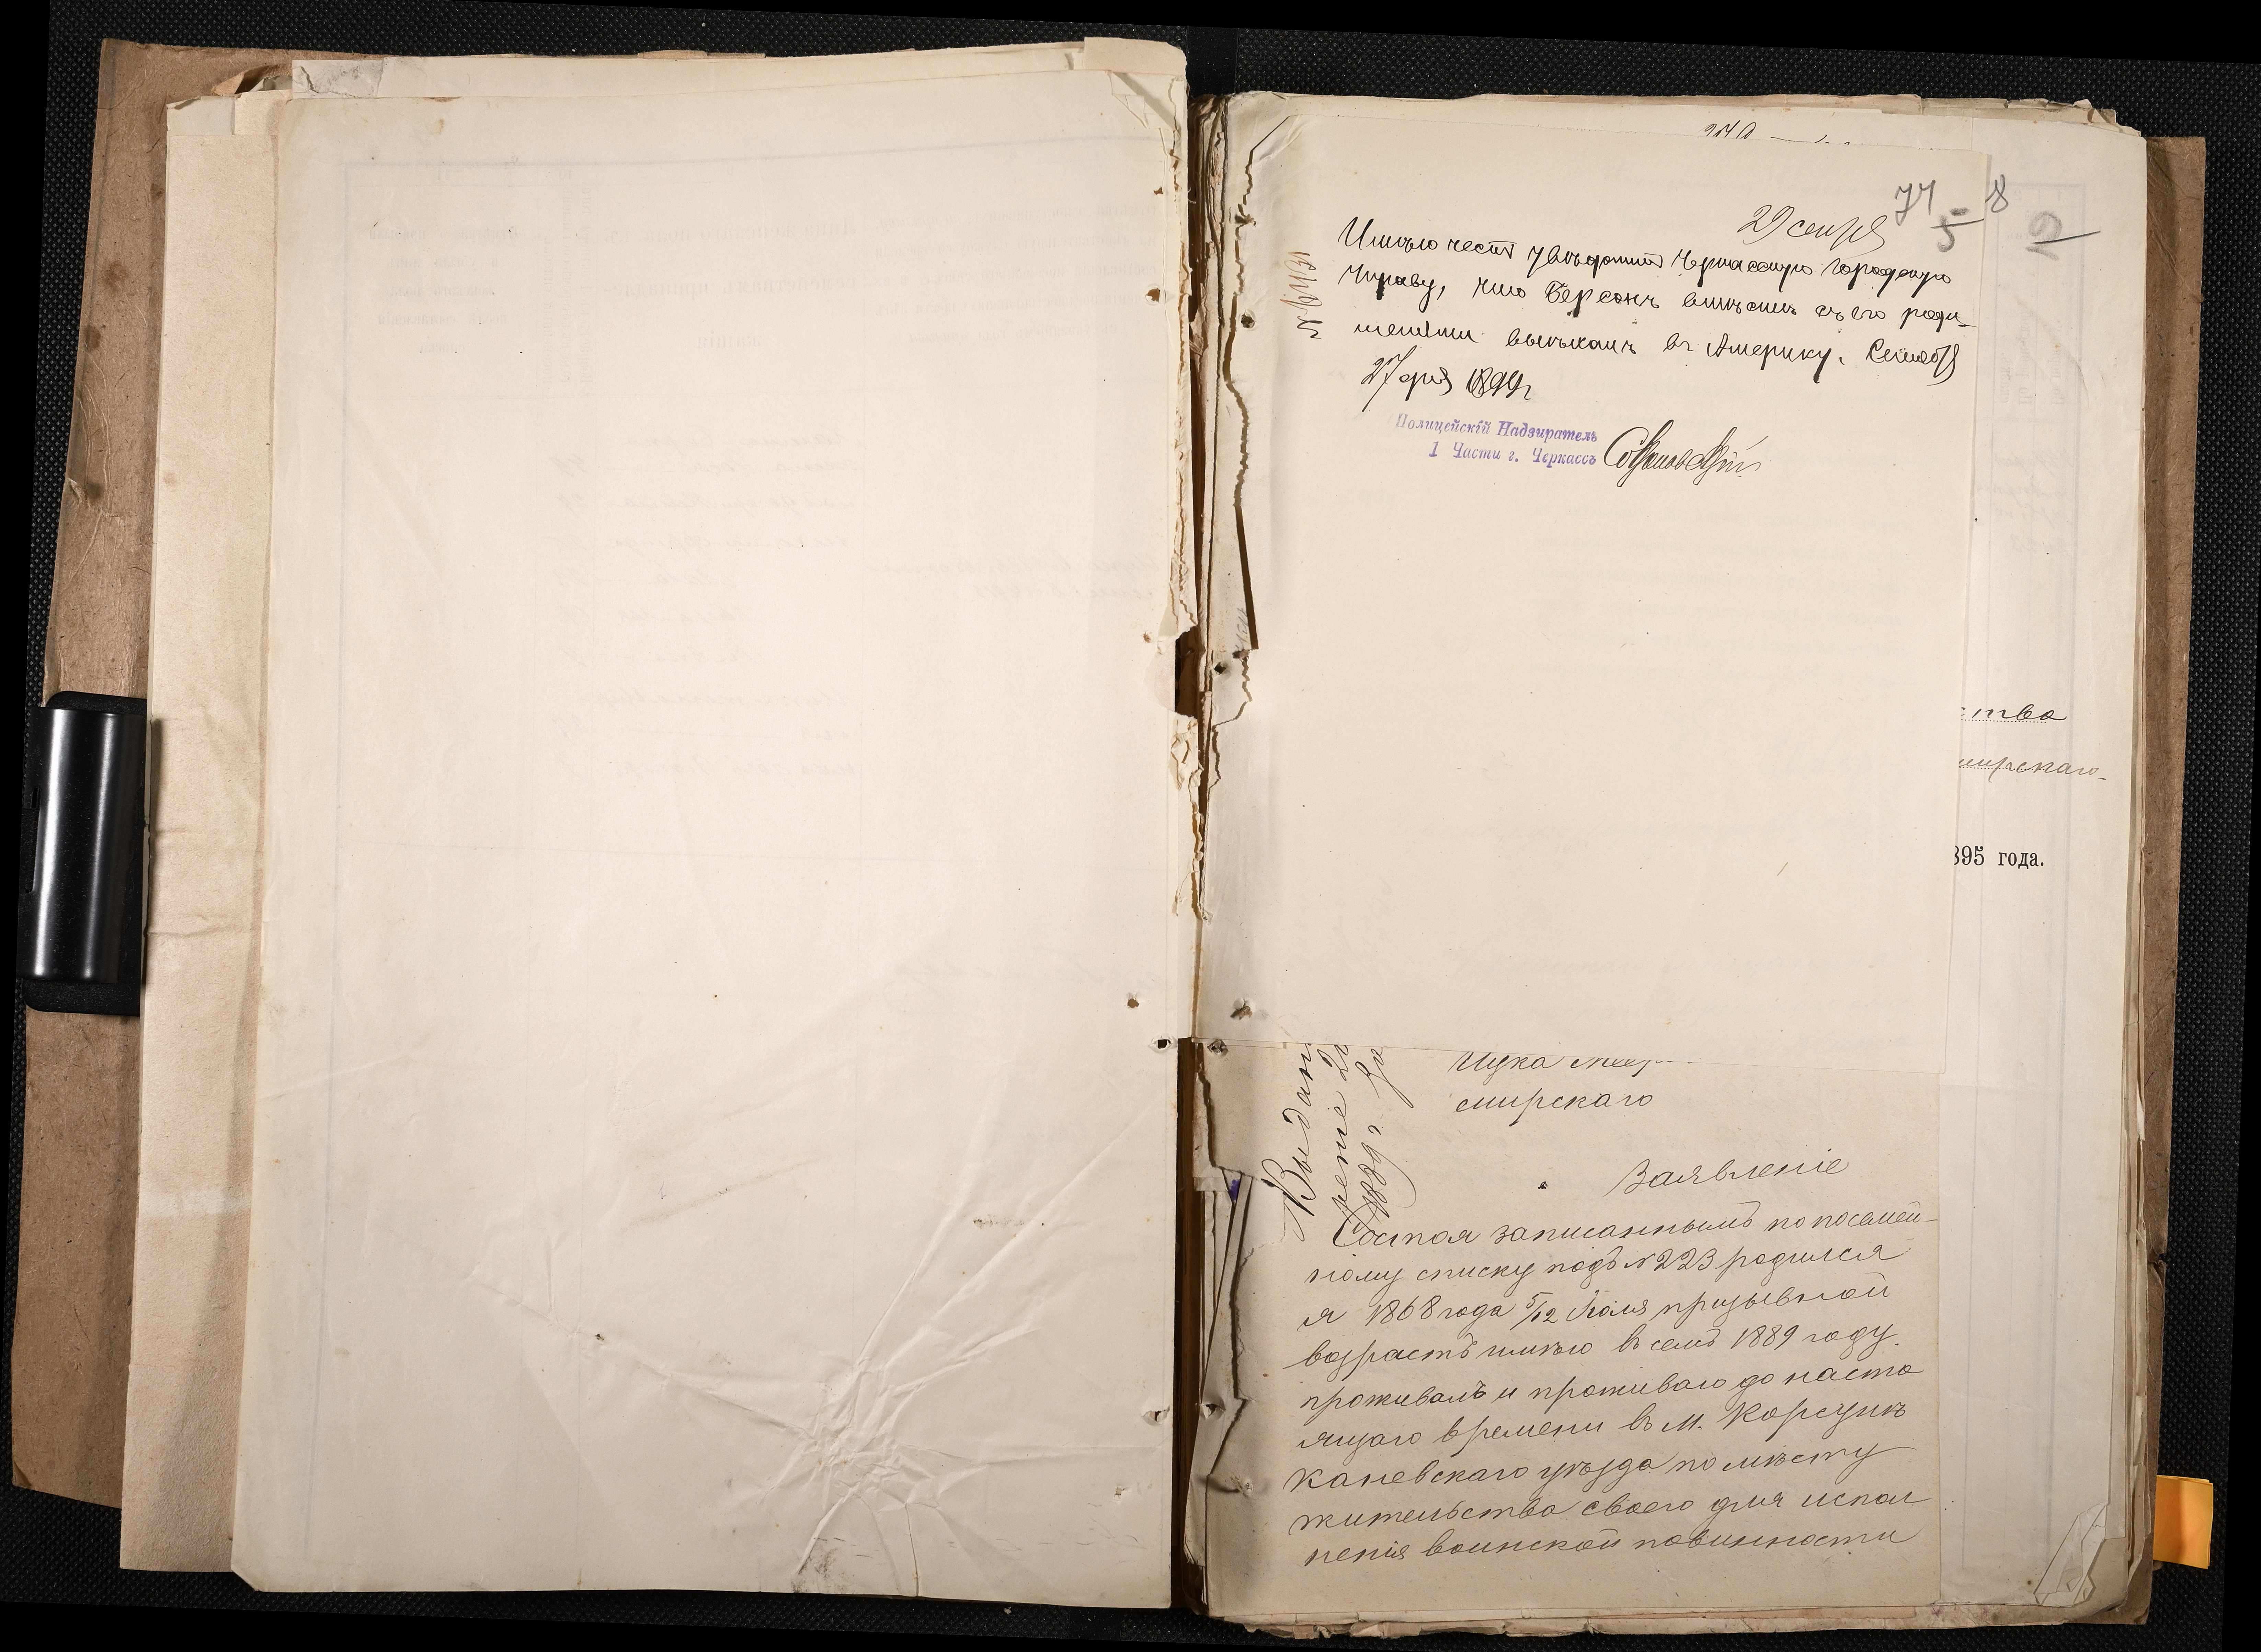 74 8
5
9
29 сентя
Имѣю честь увѣдомить Черкасскую Городскую
Управу, что Берсонъ вмѣстѣ съ его роди-
телями выѣхалъ въ Америку. Сентября
27 дня 1899 г
Полицейскій Надзиратель
1 Части г. Черкассъ
ства
мирскаго
895 года.
Ицка
смирскаго
Выдан
1889 г.
Заявленіе
Состоя записаннымъ по посемей-
ному списку подъ № 223 родился
я 1868 года 5/12 Іюля призывной
возрастъ имѣю въ семъ 1889 году.
проживалъ и проживаю до насто
ящаго времени въ м. Корсунѣ
Каневскаго уѣзда по мѣсту
жительства своего для испол
ненія воинской повинности